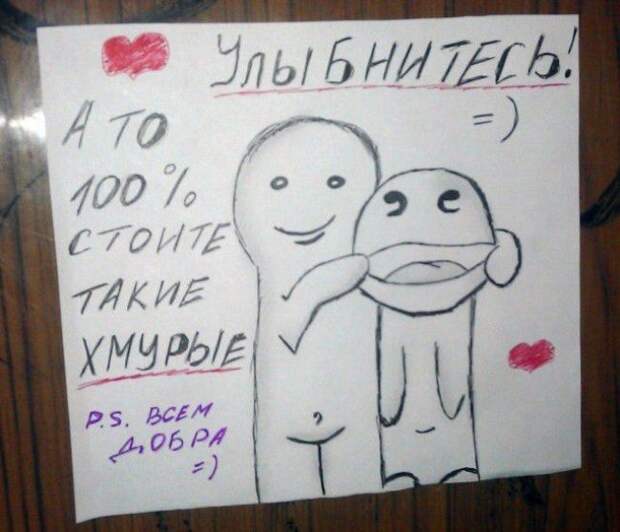 Улыбнитесь!
=)
А то
100%
стоите
такие
хмурые
P.S. всем
добра
=)